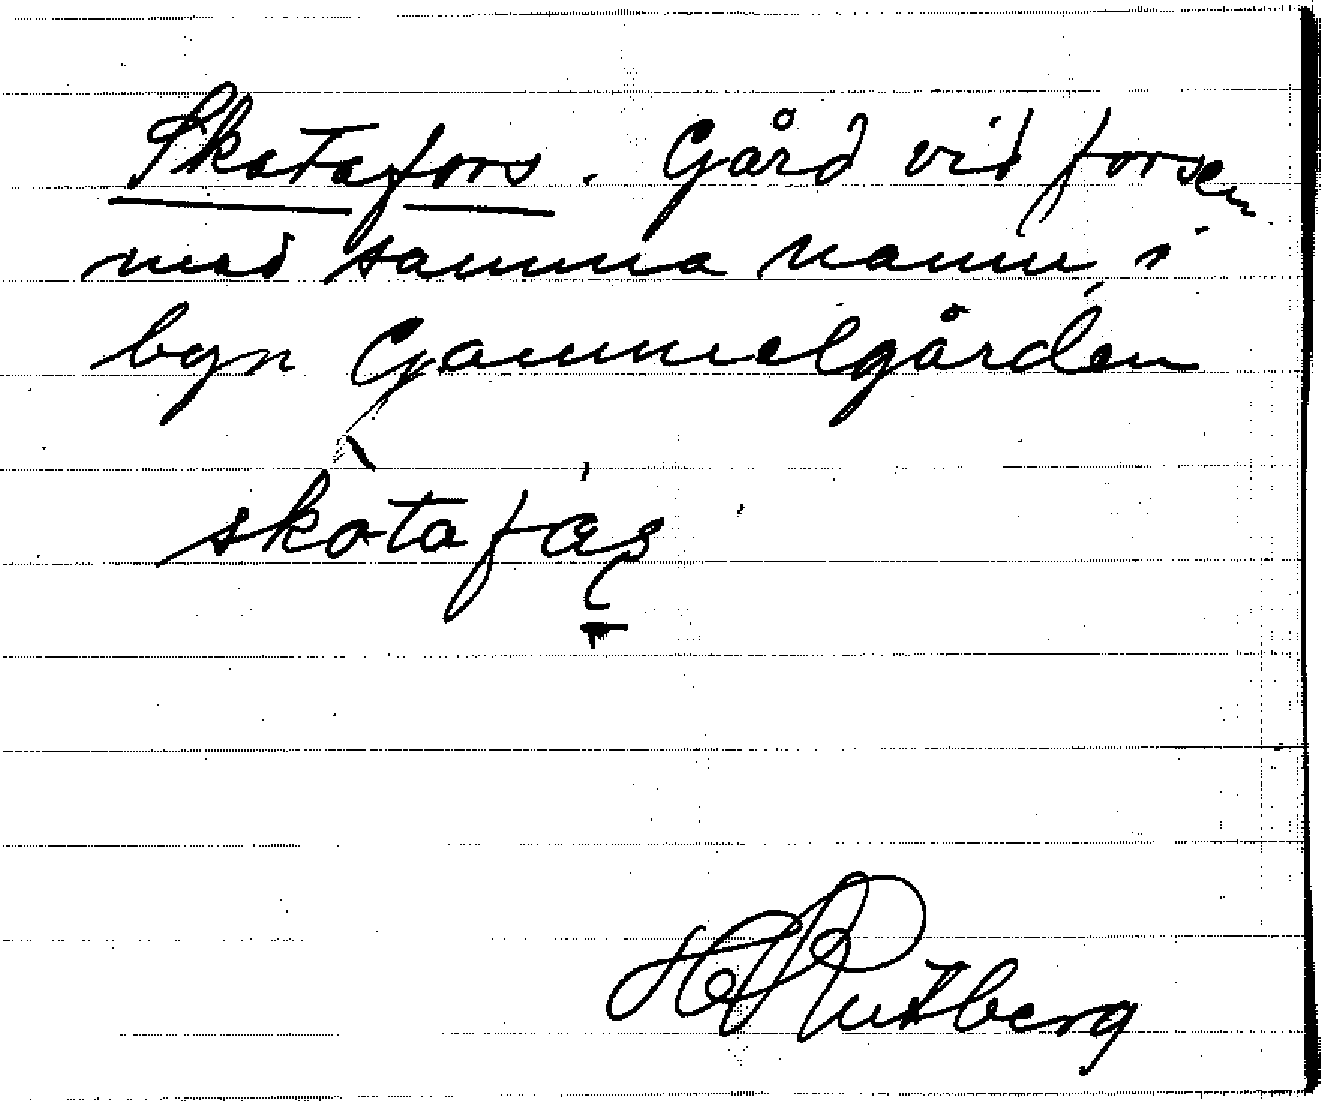 Skatafors. Gård vid forsen
med samma namn i
byn Gammelgården
skatafɑs
H Rutberg